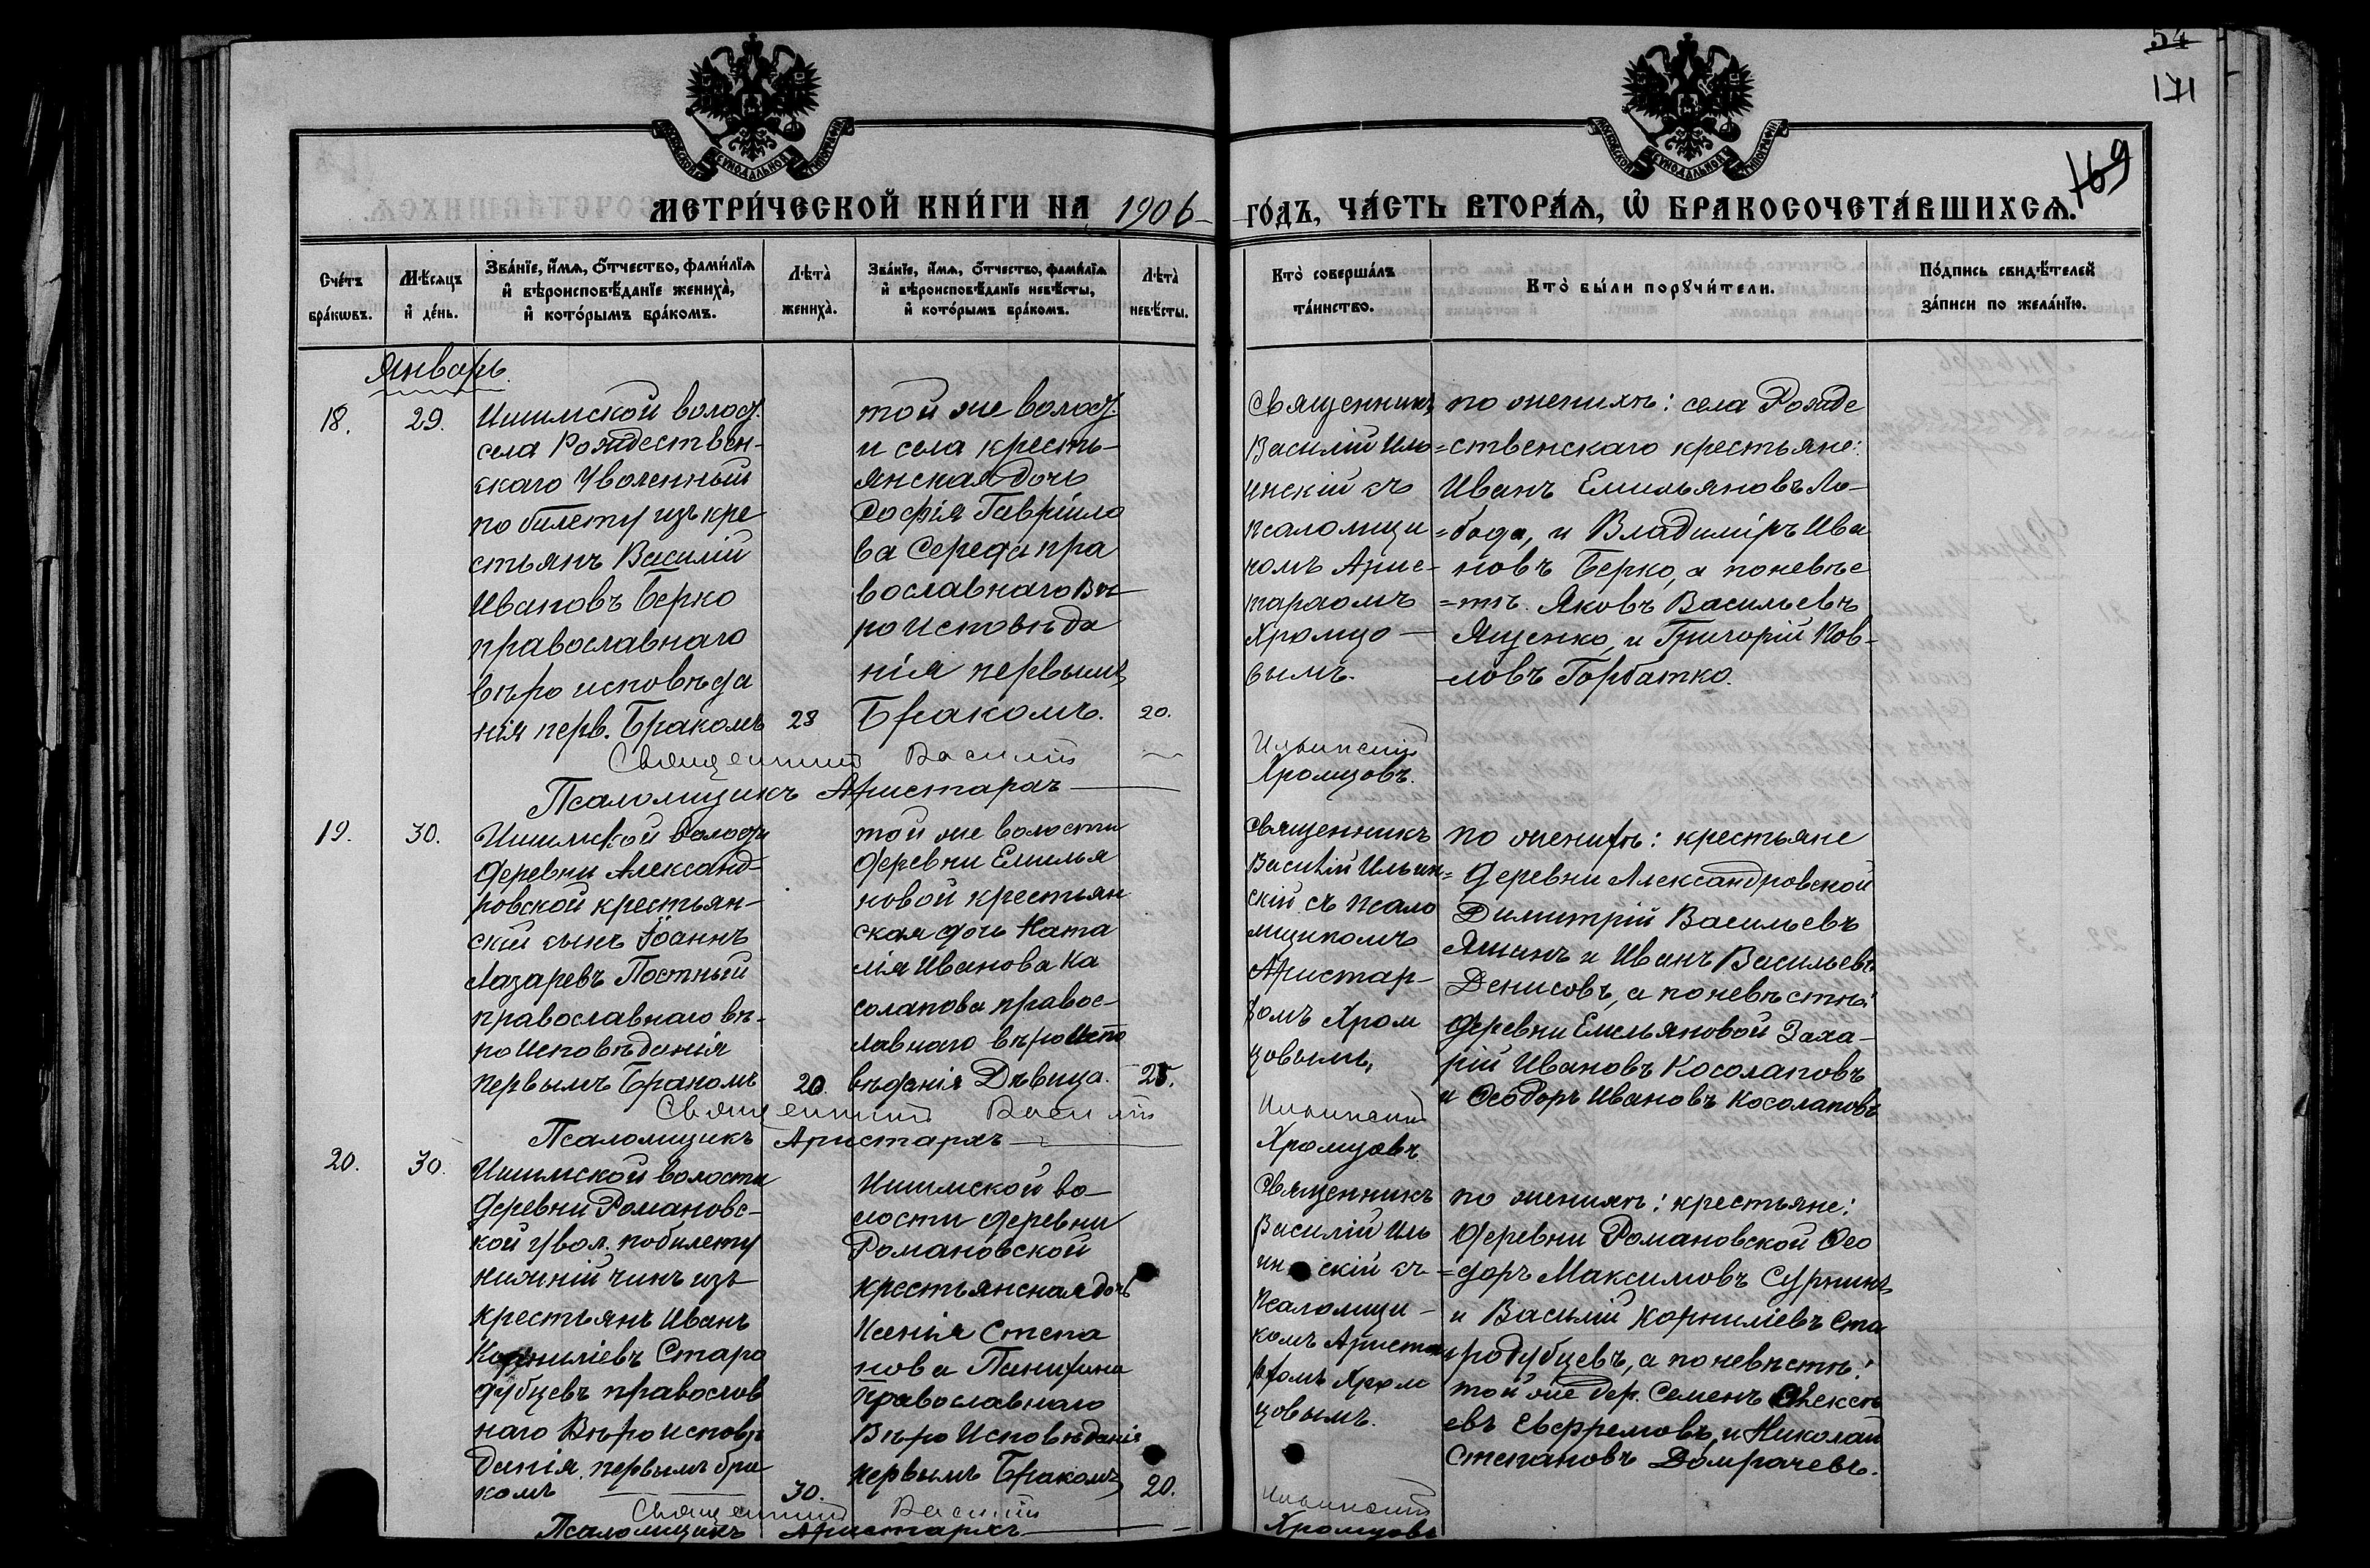 54
171
169
МЕТРИ́ЧЕСКОЙ КНИ́ГИ НА 1906 ГО́ДЪ, ЧА́СТЬ ВТОРА́Я, Ѡ БРАКОСОЧЕТА́ВШИХСЯ.
Сче́тъ бра́кωвъ.
Мѣ́сяцъ и҆ де́нь.
Зва́нїе, и҆́мя, ѻ҆́тчество, фами́лїя и҆ вѣроисповѣ́данїе жениха̀, и҆ кото́рымъ бра́комъ.
Лѣта̀ жениха̀.
Зва́нїе, и҆́мя, ѻ҆́тчество, фами́лїя и҆ вѣроисповѣ́данїе невѣ́сты, и҆ кото́рымъ бра́комъ.
Лѣта̀ невѣ́сты.
Кто̀ соверша́лъ та́инство.
Кто̀ бы́ли порꙋчи́тели.
По́дпись свидѣ́телей за́писи по жела́нїю.
Январь.
18.
29.
Ишимской волос.
села Рождествен-
скаго Уволенный
по билету изъ кре
стьянъ Василій
Ивановъ Берко
православнаго
вѣроисповѣда
нія перв. Бракомъ
28
той же волос.
и села кресть-
янская дочь
Софія Гавріило
ва Середа пра
вославнаго Вѣ
роисповѣда
нія первымъ
Бракомъ.
20.
Священникъ
Василій Иль
инскій съ
псаломщи
комъ Арис-
тархомъ
Хромцо-
вымъ.
по женихѣ: села Рожде
=ственскаго крестьяне:
Иванъ Емильяновъ Ло-
=бода, и Владиміръ Ива
новъ Берко, а по невѣс
=тѣ. Яковъ Васильевъ
Ященко, и Григорій Пов-
-ловъ Горбатко.
Священникъ Василій Ильинскій
Псаломщикъ Аристархъ Хромцовъ.
19.
30.
Ишимской волости
деревни Александ-
ровской крестьян-
скій сынъ Іоаннъ
Лазаревъ Постный
православнаго вѣ-
роисповѣданія
первымъ Бракомъ
20.
той же волости
деревни Емилья
новой крестьян
ская дочь Ната
лія Иванова Ко
солапова правос-
лавнаго вѣроиспо
вѣданія Дѣвица.
25.
Священникъ
Василій Ильин=
скій съ псало
мщикомъ
Аристар-
хомъ Хром
цовымъ,
по женихѣ: крестьяне
деревни Александровской
Димитрій Васильевъ
Яшинъ и Иванъ Васильевъ
Денисовъ, а по невѣстѣ:
деревни Емельяновой Заха-
рій Ивановъ Косолаповъ
и Ѳеодоръ Ивановъ Косолаповъ
Священникъ Василій Ильинскій
Псаломщикъ Аристархъ Хромцовъ.
20.
30.
Ишимской волости
деревни Романовс-
кой увол. по билету
нижній чинъ изъ
крестьянъ Иванъ
Корниліевъ Старо
дубцевъ православ
наго Вѣроисповѣ
данія, первымъ бра
комъ
30.
Ишимской во-
лости деревни
Романовской
крестьянская дочь
Ксенія Степа
нова
православнаго
Вѣроисповѣданія
первымъ Бракомъ
20.
Священникъ
Василій Иль
инскій съ
псаломщи-
комъ Арист
рхомъ Хром
цовымъ.
по женихѣ: крестьяне:
деревни Романовской Ѳео
=доръ Максимовъ
и Василій Корниліевъ Ста
родубцевъ, а по невѣстѣ:
той же дер. Семенъ Алексѣ
евъ Евфремовъ, и Николай
Степановъ Домрачевъ.
Священникъ Василій Ильинскій
Псаломщикъ Аристархъ Хромцовъ